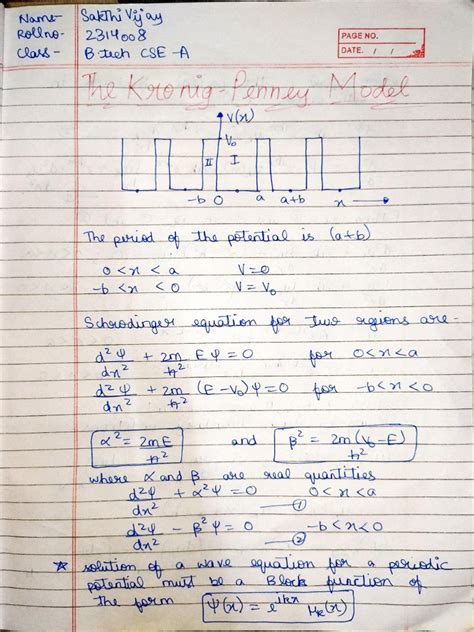 Name- Sakthi Vijay
Rollno- 2314008
Class- B-tech CSE-A
PAGE NO.
DATE. / /
The Kronig-Penney Model
V(x)
V₀
II I
-b 0 a a+b x
The period of the potential is (a+b)
0<x<a V=0
-b<x<0 V=V₀
Schrodinger equation for two regions are-
d²ψ/dx² + 2m/ħ² Eψ=0 for 0<x<a
d²ψ/dx² + 2m/ħ² (E-V₀)ψ=0 for -b<x<0
α²=2mE/ħ² and β²=2m(V₀-E)/ħ²
where α and β are real quantities
d²ψ/dx² + α²ψ=0 0<x<a
①
d²ψ/dx² - β²ψ=0 -b<x<0
②
☆ solution of a wave equation for a periodic
potential must be a Block function of
the form ψ(x)=eⁱᵏˣ μₖ(x)